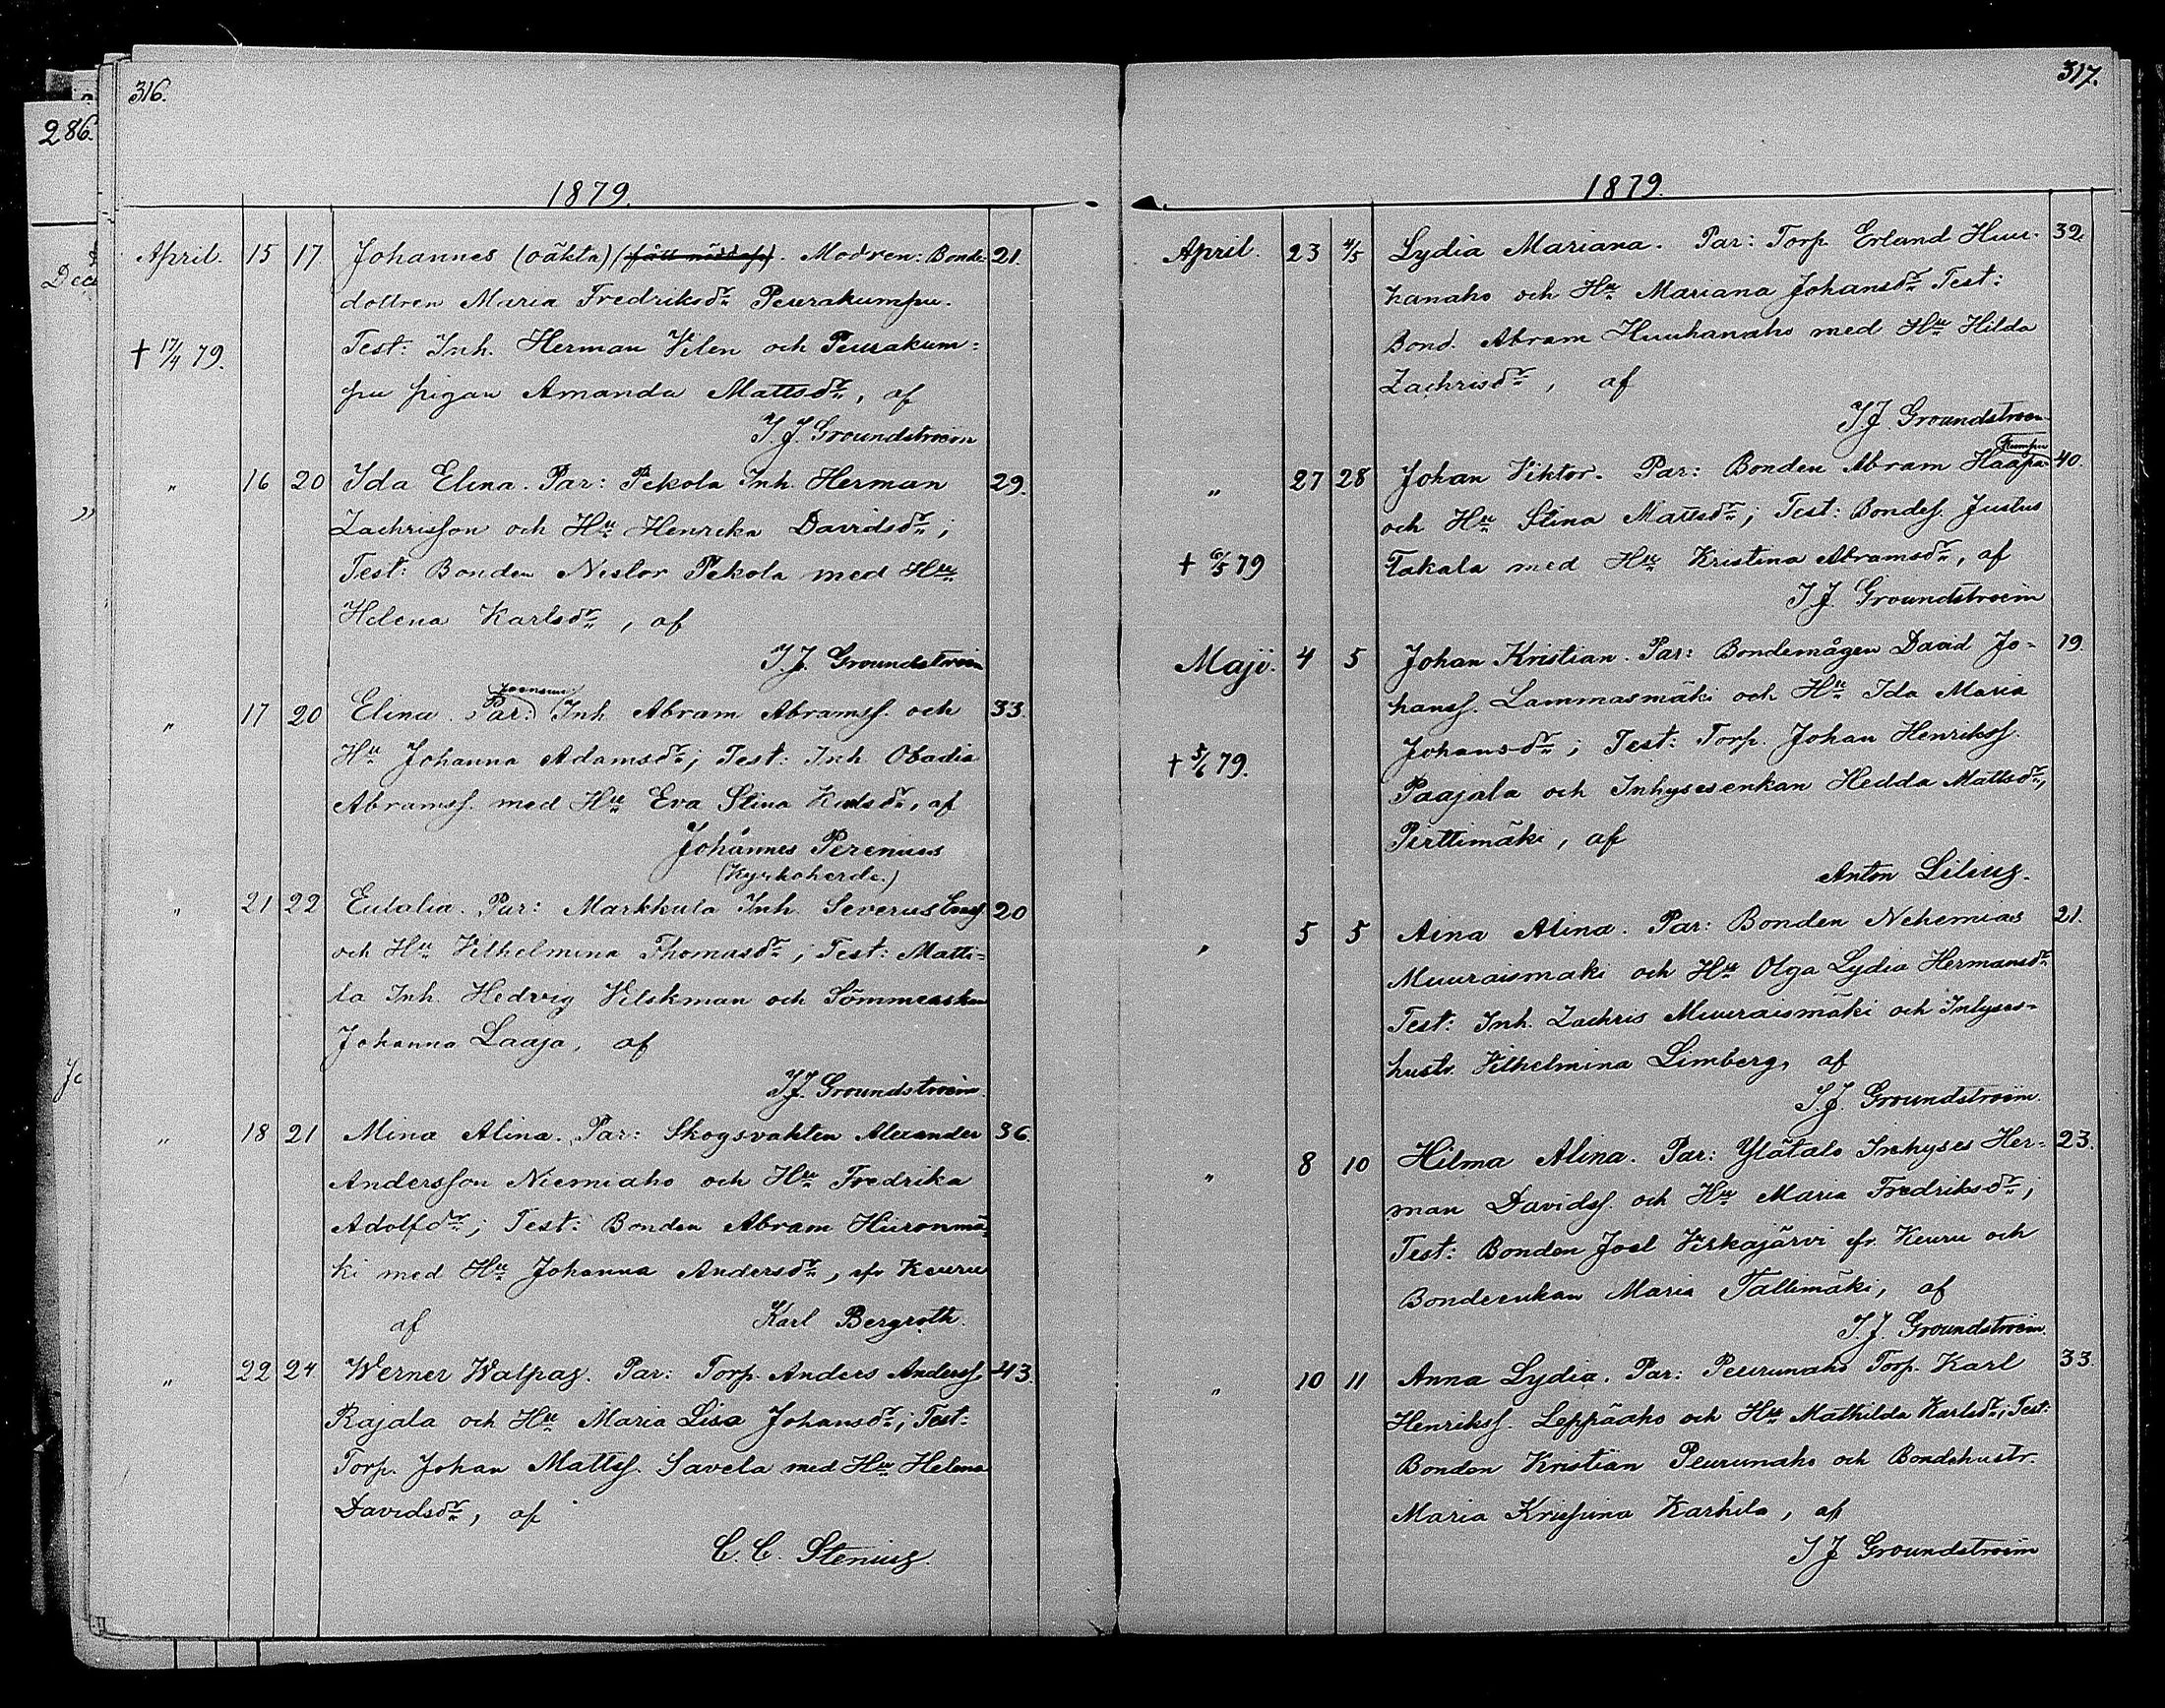 316.
286.
1879.
April. 15 17 Johannes (oäkta) . Modren: Bonde- 21.
dottren Maria Fredriksdr Peurakumpu.
† 17/4 79. Test: Inh. Herman Vilen och Peurakum-
pu pigan Amanda Mattsdr, af
I. J. Groundstroem
" 16 20 Ida Elina. Par: Pekola Inh. Herman 29.
Zachrisson och Hu Henrika Davidsdr;
Test: Bonden Nestor Pekola med Hu
Helena Karlsdr, af
I. J. Groundstroem
Joensuu
" 17 20 Elina. Par: Inh. Abram Abramss. och 33.
Hu Johanna Adamsdr; Test: Inh. Obadia
Abramss. med Hu Eva Stina af
Johannes Perenius
(Kyrkoherde.)
" 21 22 Eulalia. Par: Markkula Inh. Severus 20
och Hu Vilhelmina Thomasdr; Test: Matti-
la Inh. Hedvig Vilskman och Sömmerskan
Johanna Laaja, af
I. J. Groundstroem.
" 18 21 Mina Alina. Par: Skogsvakten Alexander 36.
Andersson Niemiaho och Hu Fredrika
Adolfdr; Test: Bonden Abram Hironmä-
ki med Hu Johanna Andersdr, fr. Keuru
af Karl Bergroth.
" 22 24 Werner Walpas. Par: Torp. Anders Anderss. 43.
Rajala och Hu Maria Lisa Johansdr; Test:
Torp. Johan Mattss. Savela med Hu Helena
Davidsdr, af
C. C. Stenius.
317.
1879.
April. 23 4/5 Lydia Mariana. Par: Torp. Erland Huu- 32.
hanaho och Hu Mariana Johansdr Test:
Bond. Abram Huuhanaho med Hu Hilda
Zachrisdr, af
I. J. Groundstroem
Kumpu
" 27 28 Johan Viktor. Par: Bonden Abram Haapa- 40.
och Hu Stina Mattsdr; Test: Bondes. Justus
† 6/5 79 Takala med Hu Kristina Abramsdr, af
I. J. Groundstroem
Maji. 4 5 Johan Kristian. Par: Bondemågen David Jo- 19.
hanss. Lammasmäki och Hu Ida Maria
† 5/6 79. Johansdr; Test: Torp. Johan Henrikss.
Paajala och Inhysesenkan Hedda Mattsdr,
Pirttimäki, af
Anton Lilius.
" 5 5 Aina Alina. Par: Bonden Nehemias 21.
Muuraismäki och Hu Olga Lydia Hermansdr
Test: Inh. Zachris Muuraismäki och Inhyses-
hustr. Vilhelmina Limberg, af
I. J. Groundstroem.
" 8 10 Hilma Alina. Par: Ylätalo Inhyses Her- 23.
man Davidss. och Hu Maria Fredriksdr;
Test: Bonden Joel Virkajärvi fr. Keuru och
Bondeenkan Maria Tallimäki, af
I. J. Groundstroem.
" 10 11 Anna Lydia. Par: Peurunaho Torp. Karl 33.
Henrikss. Leppäaho och Hu Mathilda Karlsdr; Test:
Bonden Kristian Peurunaho och Bondehustr.
Maria Karhila, af
I. J. Groundstroem